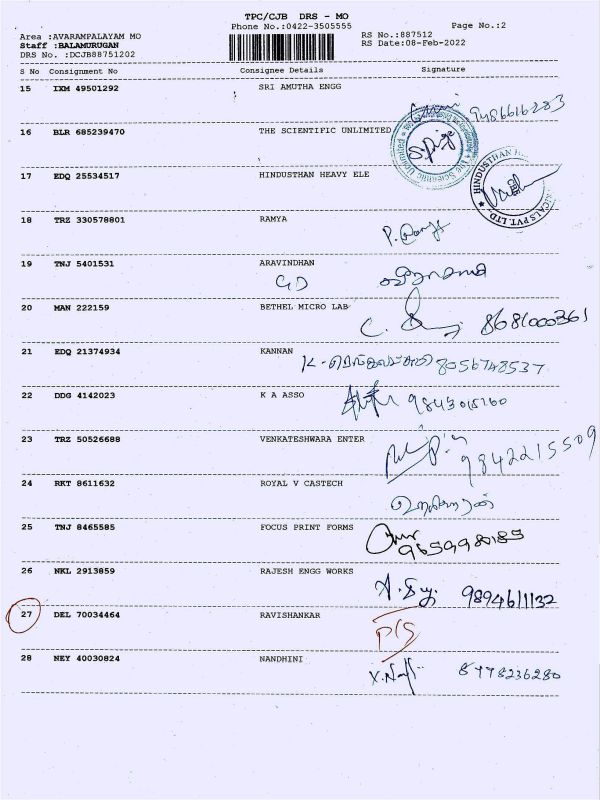 TPC/CJB DRS - MO
Phone No.:0422-3505555 Page No.:2
Area :AVARAMPALAYAM MO RS No.:887512
Staff :BALAMURUGAN RS Date:08-Feb-2022
DRS No. :DCJB88751202
S No Consignment No Consignee Details Signature
15 IXM 49501292 SRI AMUTHA ENGG
9486616283
16 BLR 685239470 THE SCIENTIFIC UNLIMITED
The Scientific Unlimited
17 EDQ 25534517 HINDUSTHAN HEAVY ELE
HINDUSTHAN PVT. LTD.
18 TRZ 330578801 RAMYA
19 TNJ 5401531 ARAVINDHAN
20 MAN 222159 BETHEL MICRO LAB
8681000361
21 EDQ 21374934 KANNAN
8056748537
22 DDG 4142023 K A ASSO
23 TRZ 50526688 VENKATESHWARA ENTER
9842215509
24 RKT 8611632 ROYAL V CASTECH
25 TNJ 8465585 FOCUS PRINT FORMS
26 NKL 2913859 RAJESH ENGG WORKS
9894611132
27 DEL 70034464 RAVISHANKAR
28 NEY 40030824 NANDHINI
8778236280